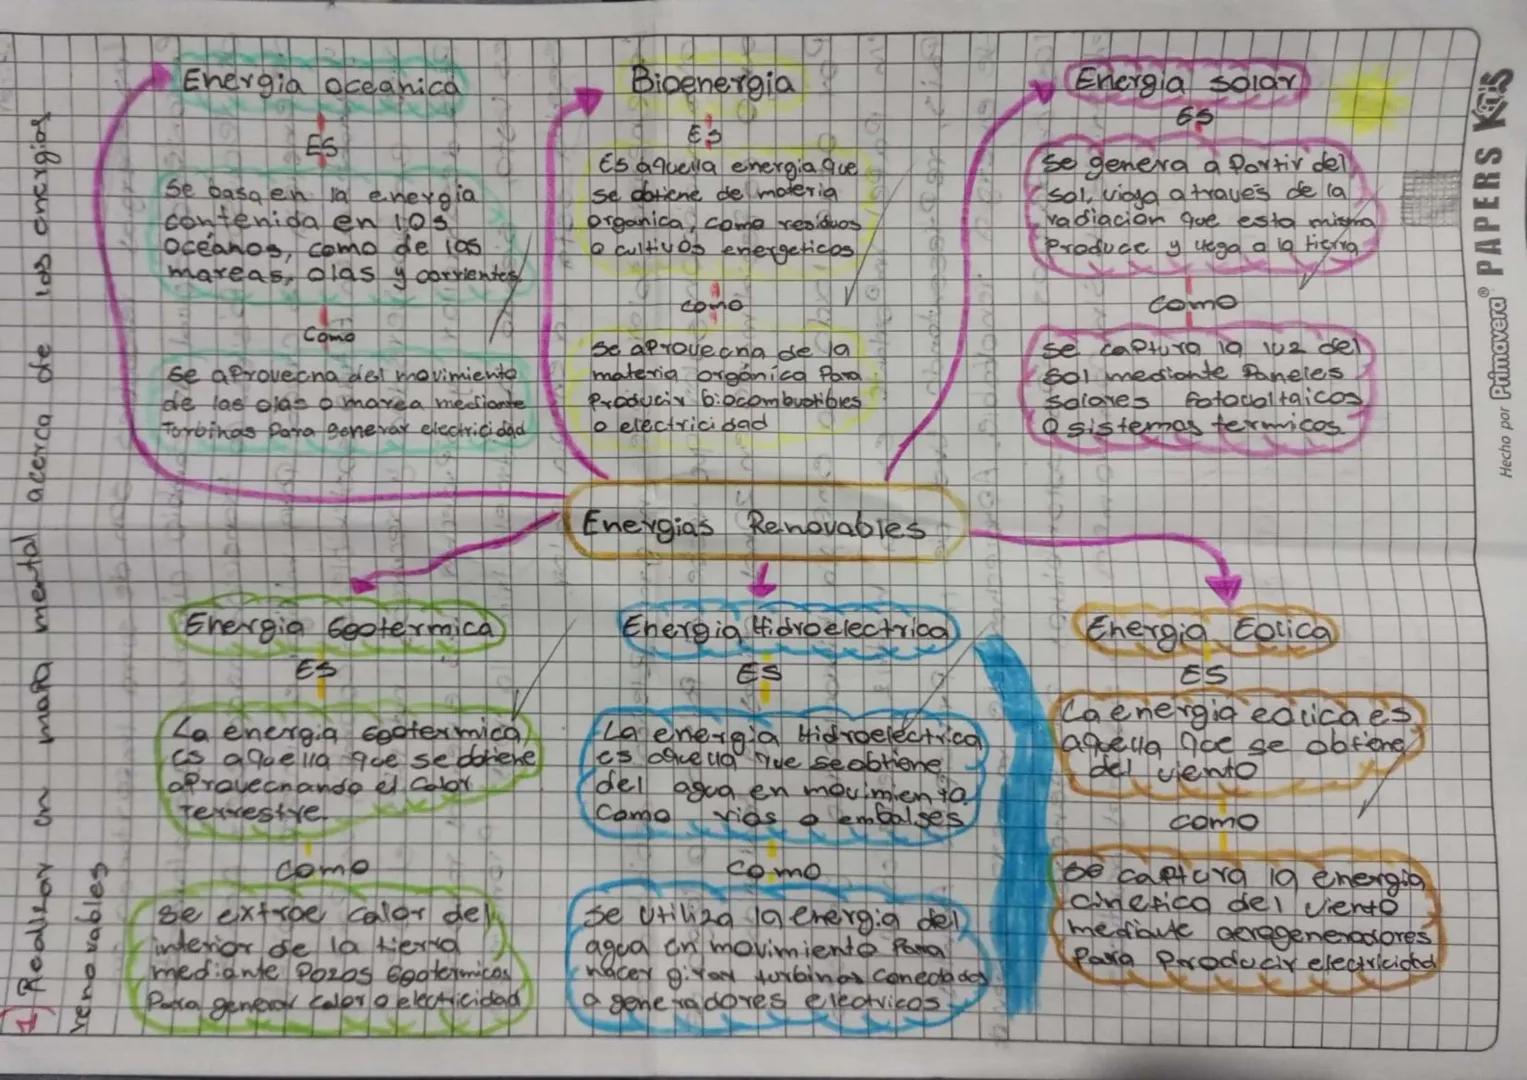 1) Realizar un mapa mental acerca de las energias
renovables
Energia oceanica
ES
Se basa en la energia
contenida en los
océanos, como de las
mareas, olas y corrientes
Como
Se aprovecha del movimiento
de las olas o marea mediante
Turbinas para generar electricidad
Bioenergia
ES
Es aquella energia que
se obtiene de materia
organica, como residuos
o cultivos energeticos
como
Se aprovecha de la
materia orgánica para
producir biocombustibles
o electricidad
Energia solar
ES
Se genera a partir del
sol, viaja a través de la
radiación que esta misma
produce y llega a la tierra
como
Se captura la luz del
sol mediante Paneles
solares fotovoltaicos
o sistemas termicos
Energias Renovables
Energia Geotermica
ES
La energia Geotermica
es aquella que se obtiene
aprovechando el calor
Terrestre
como
Se extrae calor del
interior de la tierra
mediante Pozos Geotermicos
Para generar calor o electricidad
Energia Hidroelectrica
ES
La energia Hidroeléctrica
es aquella que se obtiene
del agua en movimiento
Como rios o embalses
como
Se utiliza la energia del
agua en movimiento para
hacer girar turbinas conectadas
a generadores electricos
Energia Eolica
ES
La energia eolica es
aquella que se obtiene
del viento
como
Se captura la energia
cinetica del viento
mediante aerogeneradores
Para Producir electricidad
Hecho por Primavera® PAPERS KIDS